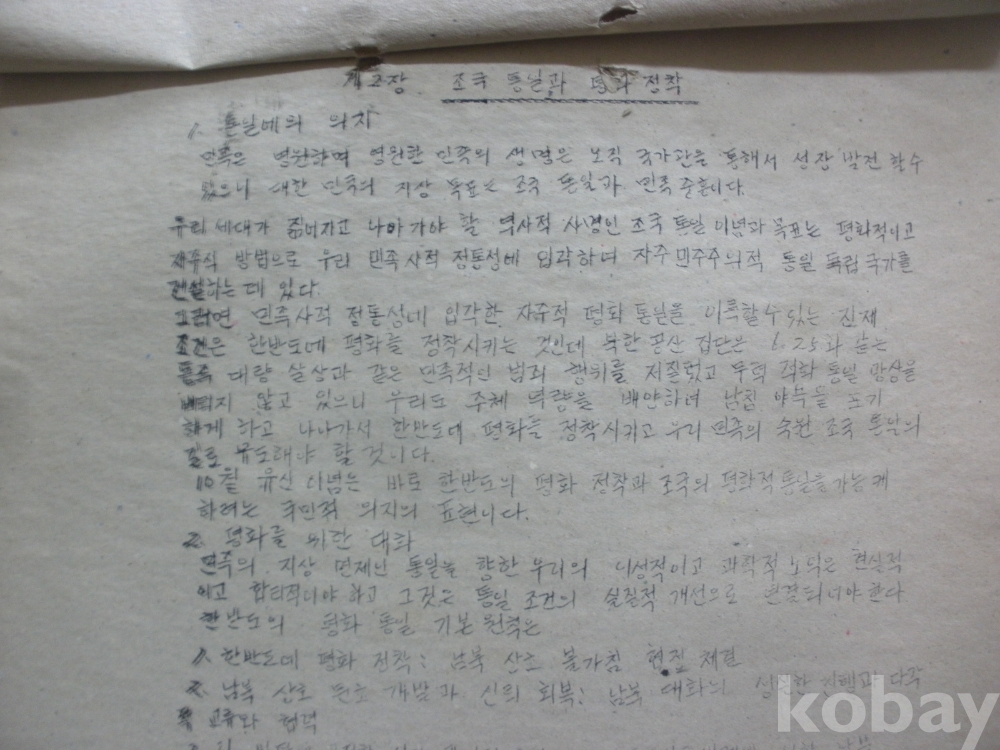 제2장. 조국 통일과 평화 정착
1. 통일에의 의지
민족은 영원하며 영원한 민족의 생명은 오직 국가관을 통해서 성장 발전 할수
있으니 대한 민족의 지상 목표는 조국 통일과 민족 중흥니다.
우리 세대가 짊어지고 나아가야 할 역사적 사명인 조국 통일 이념과 목표는 평화적이고
자주식 방법으로 우리 민족사적 정통성에 입각하여 자주 민주주의적 통일 독립 국가를
건설하는 데 있다.
그러면 민족사적 정통성네 입각한 자주적 평화 통일을 이룩할수 있는 전제
조건은 한반도에 평화를 정착시키는 것인데 북한 공산 집단은 6.25와 같은
동족 대량 살상과 같은 민족적인 범죄 행위를 저질렀고 무력 적화 통일 망상을
버리지 않고 있으니 우리도 주체 역량을 배양하여 남침 야욕을 포기
하게 하고 나나가서 한반도에 평화를 정착시키고 우리 민족의 숙원 조국 통일의
길로 유도해야 할 것니다.
10월 유신 이념는 바로 한반도의 평화 정착과 조국의 평화적 통일을 가능케
하려는 국민적 의지의 표현니다.
2. 평화를 위한 대화
민족의 지상 명제인 통일을 향한 우리의 니성적이고 과학적 노력은 현실적
이고 합리적니야 하고 그것은 통일 조건의 실질적 개선으로 연결되니야 한다
한반도의 평화 통일 기본 원칙은
1. 한반도에 평화 정착: 남북 상호 불가침 협정 체결
2. 남북 상호 문호 개방과 신뢰 회복: 남북 대화의 성실한 진행과 다각
적 교류와 협력
kobay